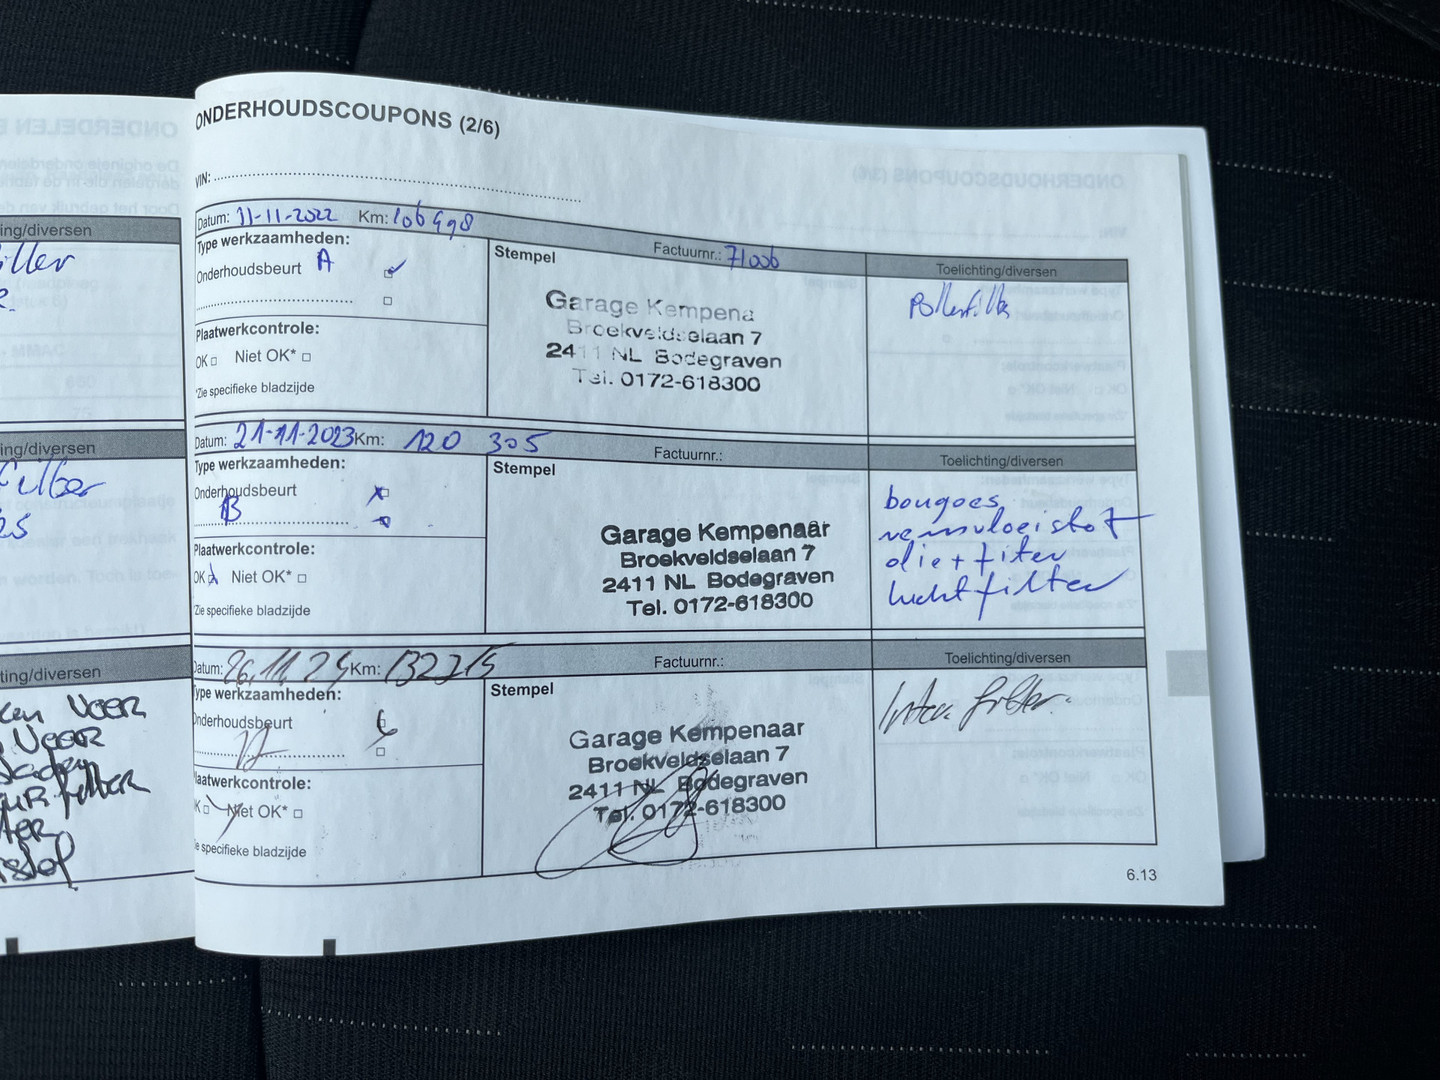 ing/diversen
iller
ing/diversen
ing/diversen
ken VOOR
VOOR
ONDERHOUDSCOUPONS (2/6)
VIN:
Datum: 11-11-2022 Km: 106998
Type werkzaamheden:
Onderhoudsbeurt A
Plaatwerkcontrole:
OK □ Niet OK* □
*Zie specifieke bladzijde
Stempel
Factuurnr.: 71006
Garage Kempena
Broekveldselaan 7
2411 NL Bodegraven
Tel. 0172-618300
Toelichting/diversen
Pollenfilter
Datum: 21-11-2023 Km: 120 305
Type werkzaamheden:
Onderhoudsbeurt
B
Plaatwerkcontrole:
OK Niet OK* □
*Zie specifieke bladzijde
Stempel
Factuurnr.:
Garage Kempenaar
Broekveldselaan 7
2411 NL Bodegraven
Tel. 0172-618300
Toelichting/diversen
bougoes
remvloeistof
olie + filter
luchtfilter
Datum: 26.11.24 Km: 132215
Type werkzaamheden:
Onderhoudsbeurt
Plaatwerkcontrole:
K □ Niet OK* □
ie specifieke bladzijde
Stempel
Factuurnr.:
Garage Kempenaar
Broekveldselaan 7
2411 NL Bodegraven
Tel. 0172-618300
Toelichting/diversen
filter
6.13